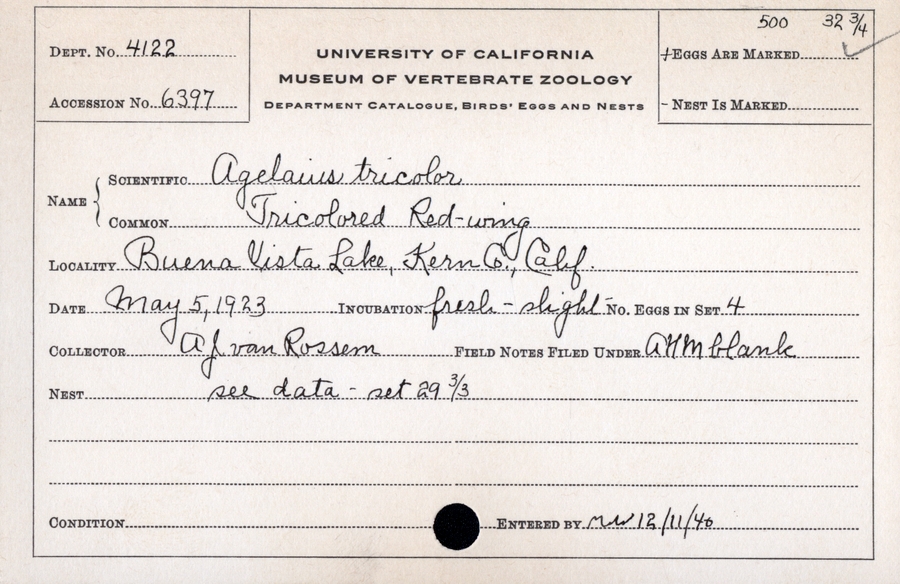 500 32 3/4
Dept. No. 4122
UNIVERSITY OF CALIFORNIA
+Eggs Are Marked
MUSEUM OF VERTEBRATE ZOOLOGY
Accession No. 6397
Department Catalogue, Birds' Eggs and Nests
- Nest Is Marked
Name
Scientific Agelaius tricolor
Common Tricolored Red-wing
Locality Buena Vista Lake, Kern Co., Calif.
Date May 5, 1923 Incubation fresh - slight - No. Eggs in Set 4
Collector A J van Rossem Field Notes Filed Under AHM blank
Nest see data - set 29 3/3
Condition Entered by 12/11/40